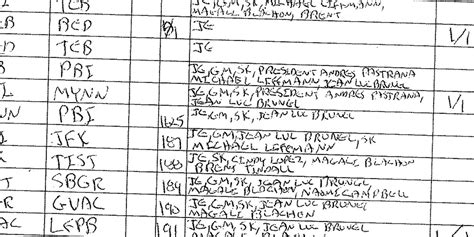 TEB JE, GM, SK, MICHAEL LIFFMANN,
MAGALI BLACHON, BRENT
BED JE 1/1
TEB JE
PBI JE, GM, SK, PRESIDENT ANDRES PASTRANA
MICHAEL LIFFMANN, JEAN LUC BRUNEL
I MYNN JE, GM, SK, PRESIDENT ANDRES PASTRANA, 1/1
JEAN LUC BRUNEL
PBI JE, GM, SK, JEAN LUC BRUNEL
I JFK 187 JE, GM, JEAN LUC BRUNEL, SK
MICHAEL LIFFMANN
TIST 188 JE, SK, CINDY LOPEZ, MAGALI BLACHON
BRENT TINDALL
T SBGR 189 JE, GM, SK, JEAN LUC BRUNEL
MAGALI BLACHON, NAOMI CAMPBELL
R GVAC 190 JE, GM, SK, JEAN LUC BRUNEL
MAGALI BLACHON
AC LEPB 191 JE, GM, SK, JEAN LUC BRUNEL
MAGALI BLACHON